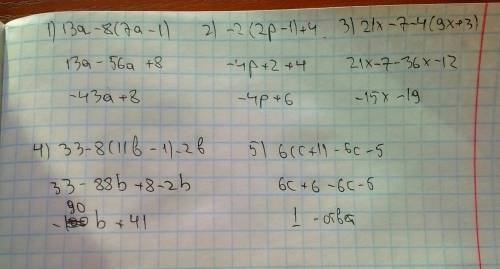 1) 13a-8(7a-1)
13a-56a+8
-43a+8
2) -2(2p-1)+4
-4p+2+4
-4p+6
3) 21x-7-4(9x+3)
21x-7-36x-12
-15x-19
4) 33-8(11b-1)-2b
33-88b+8-2b
-90b+41
5) 6(c+1)-6c-5
6c+6-6c-5
1 -ответ